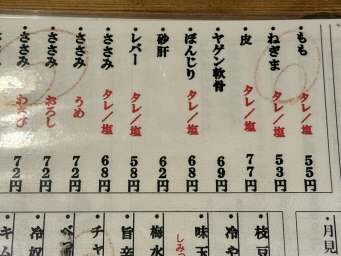 ・もも タレ／塩 55円
・ねぎま タレ／塩 53円
・皮 タレ／塩 77円
・ヤゲン軟骨 69円
・ぼんじり タレ／塩 68円
・砂肝 62円
・レバー タレ／塩 58円
・ささみ タレ／塩 68円
・ささみ うめ 72円
・ささみ おろし 72円
・ささみ わさび 72円
・月見
・枝豆
・冷や
・味玉
しみつ
・梅水
・旨辛
・チャ
・冷奴
・キム